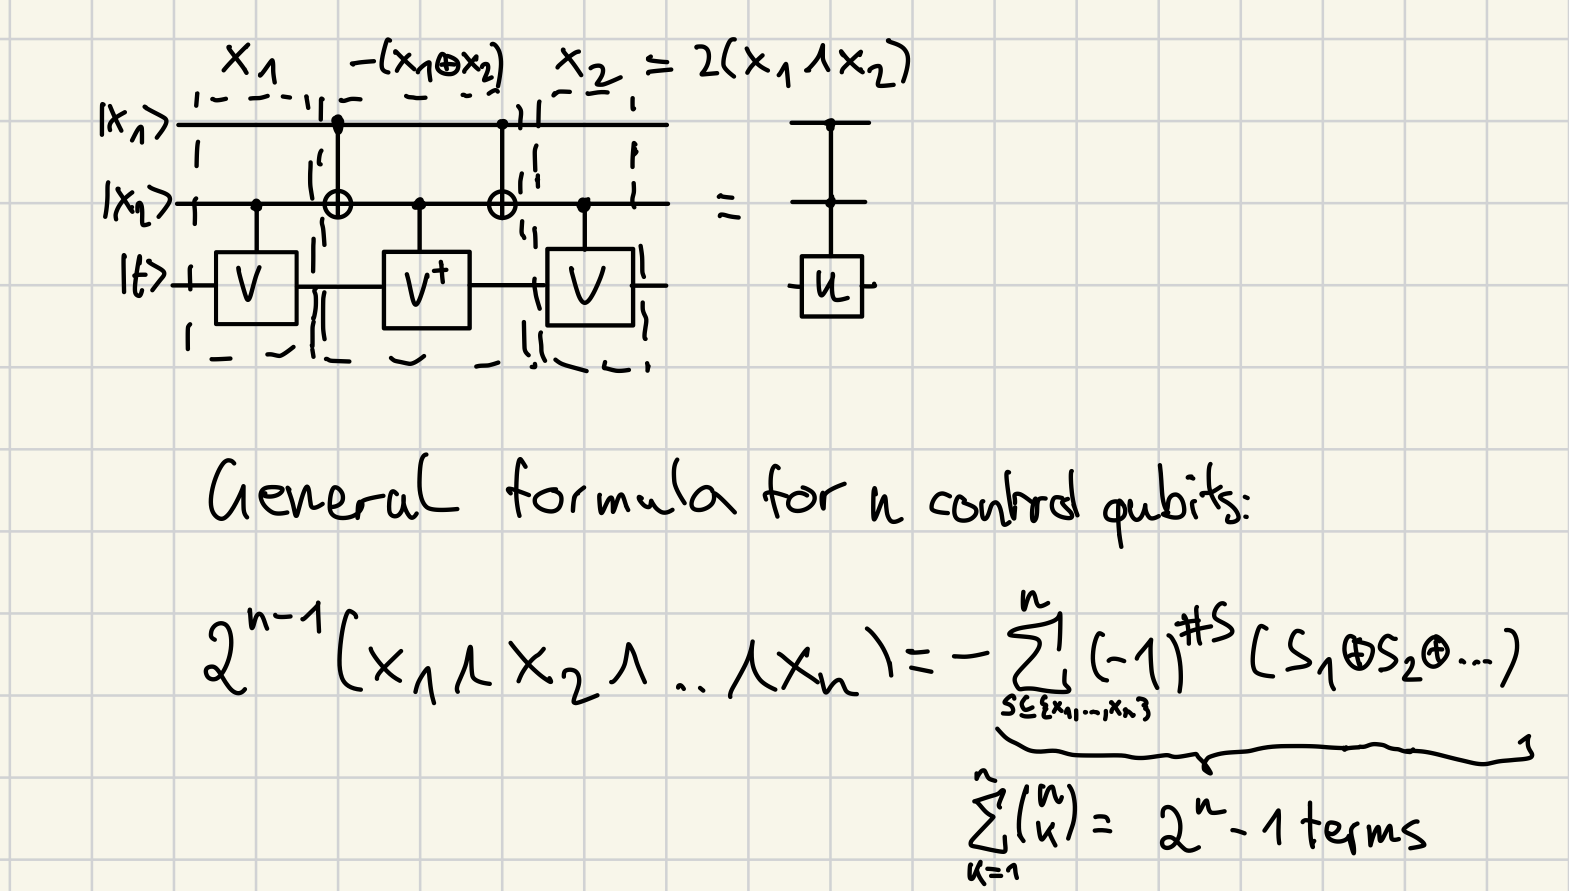 x₁ -(x₁⊕x₂) x₂ = 2(x₁∧x₂)
|x₁⟩
|x₂⟩ =
|t⟩ V V⁺ V U
General formula for n control qubits:
2ⁿ⁻¹(x₁∧x₂∧...∧xₙ) = -∑ⁿ_{S⊆{x₁,...,xₙ}} (-1)^{#S} (S₁⊕S₂⊕...)
∑ⁿ_{k=1} (n k) = 2ⁿ-1 terms